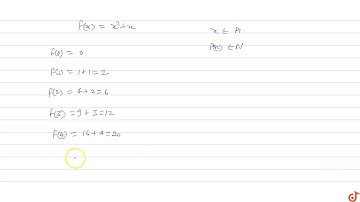 f(x) = x²+x
x ∈ A
f(x) ∈ N
f(0) = 0
f(1) = 1+1=2
f(2) = 4+2=6
f(3) = 9+3=12
f(4) = 16+4=20